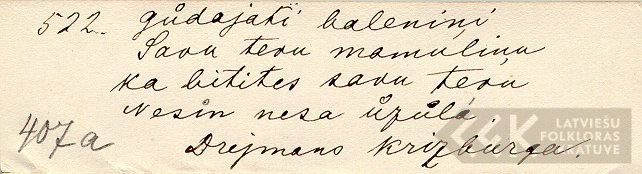 522. gůdajati balenini
Savu tevu mamulinu
ka bitites savu tevu
Nesin nesa ůzůlá
407a
Drejmans Krizburga.
LATVIEŠU
FOLKLORAS
KRĀTUVE